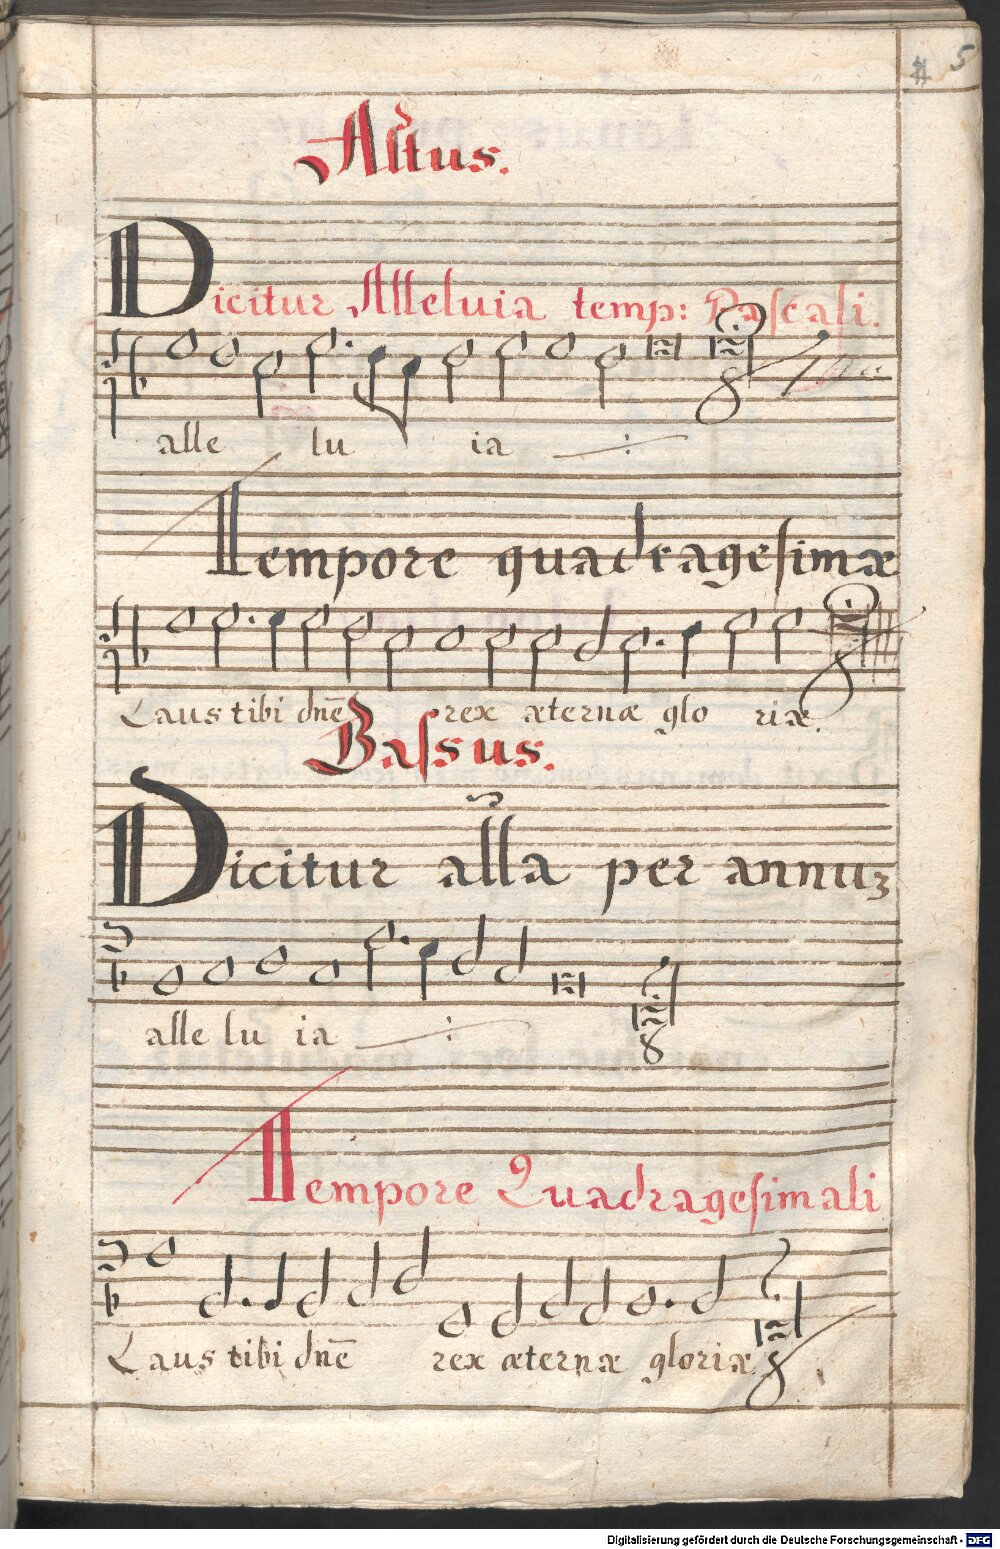 5
Altus.
Dicitur Alleluia temp: Pascali.
alle lu ia
Tempore quadragesimæ
Laus tibi dnē rex æternæ glo riæ.
Bassus.
Dicitur alla per annuꝫ
alle lu ia
Tempore Quadragesimali
Laus tibi dnē rex æternæ gloriæ
Digitalisierung gefördert durch die Deutsche Forschungsgemeinschaft - DFG